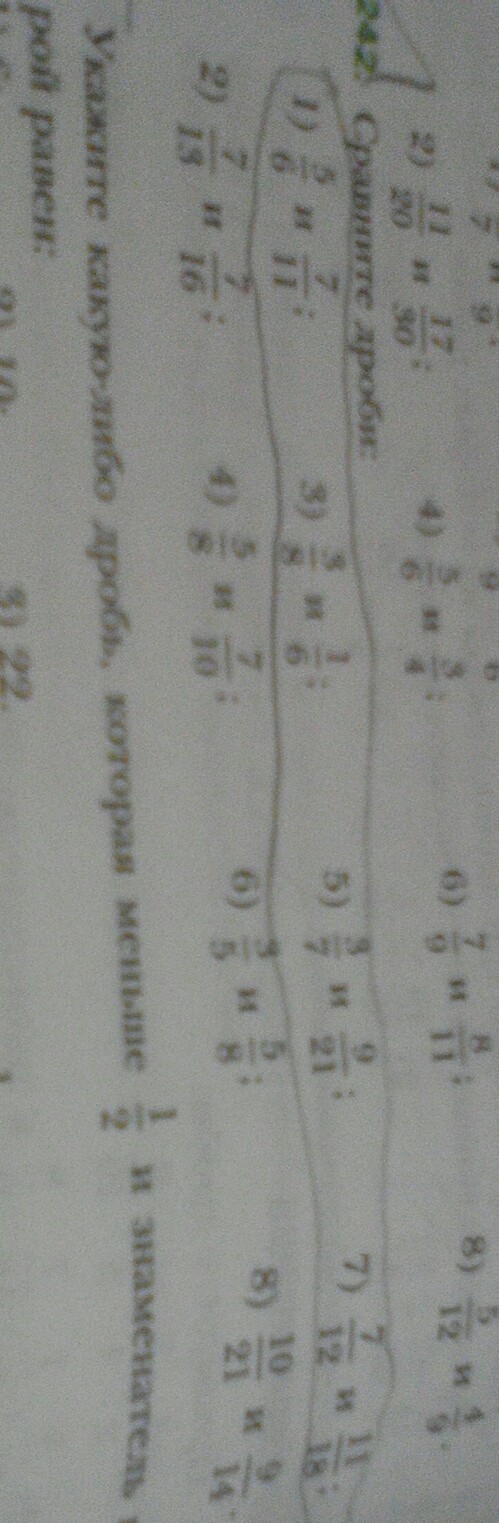 2) 11/20 и 17/30; 4) 5/6 и 3/4; 6) 7/9 и 8/11; 8) 5/12 и 4/9.
242. Сравните дроби:
1) 5/6 и 7/11; 3) 3/8 и 1/6; 5) 3/7 и 9/21; 7) 7/12 и 11/18;
2) 7/13 и 7/16; 4) 5/8 и 7/10; 6) 3/5 и 5/8; 8) 10/21 и 9/14.
Укажите какую-либо дробь, которая меньше 1/2 и знаменатель
рой равен:
2) 10; 3) 22;